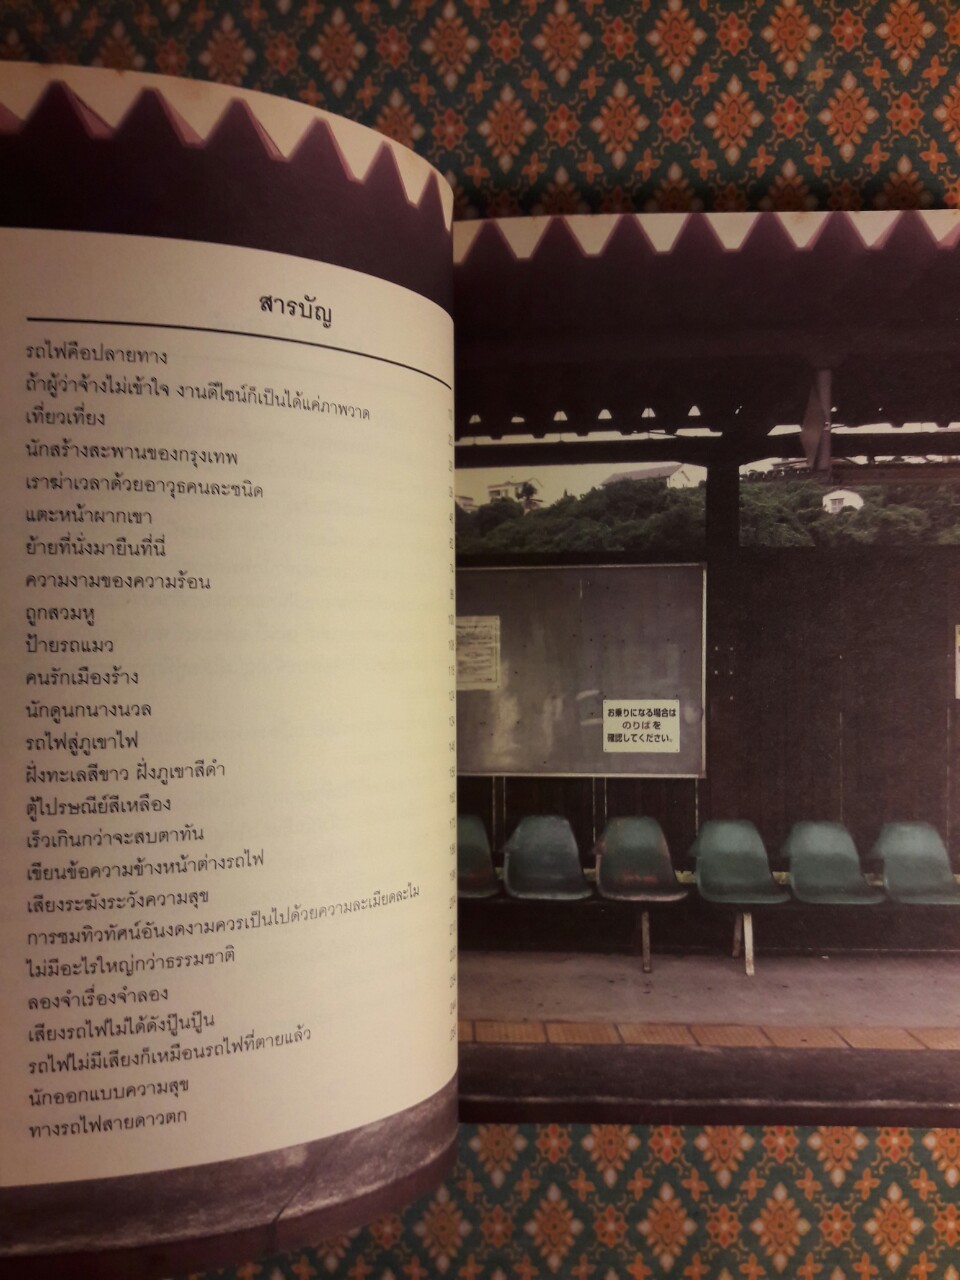 สารบัญ
รถไฟคือปลายทาง
ถ้าผู้ว่าจ้างไม่เข้าใจ งานดีไซน์ก็เป็นได้แค่ภาพวาด
เที่ยวเที่ยง
นักสร้างสะพานของกรุงเทพ
เราฆ่าเวลาด้วยอาวุธคนละชนิด
แตะหน้าผากเขา
ย้ายที่นั่งมายืนที่นี่
ความงามของความร้อน
ถูกสวมหู
ป้ายรถแมว
คนรักเมืองร้าง
นักดูนกนางนวล
รถไฟสู่ภูเขาไฟ
ฝั่งทะเลสีขาว ฝั่งภูเขาสีดำ
ตู้ไปรษณีย์สีเหลือง
เร็วเกินกว่าจะสบตาทัน
เขียนข้อความข้างหน้าต่างรถไฟ
เสียงระฆังระวังความสุข
การชมทิวทัศน์อันงดงามควรเป็นไปด้วยความละเมียดละไม
ไม่มีอะไรใหญ่กว่าธรรมชาติ
ลองจำเรื่องจำลอง
เสียงรถไฟไม่ได้ดังปู๊นปู๊น
รถไฟไม่มีเสียงก็เหมือนรถไฟที่ตายแล้ว
นักออกแบบความสุข
ทางรถไฟสายดาวตก
お乗りになる場合は
のりばを
確認してください。